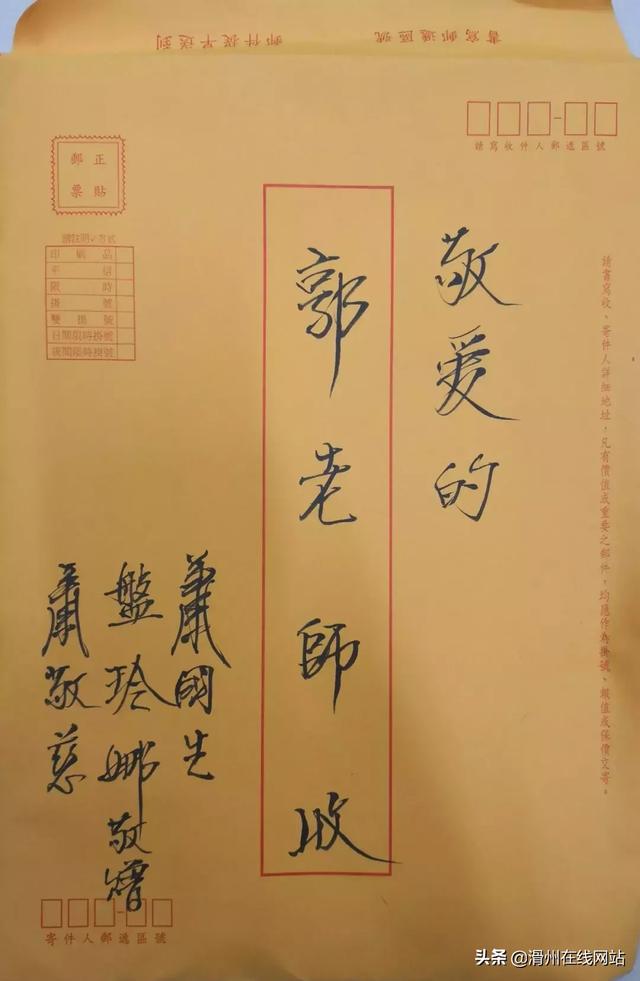 書寫郵遞區號 郵件提早送到
請寫收件人郵遞區號
正貼
郵票
印刷品
平信
限時
掛號
雙掛號
日間限時掛號
夜間限時掛號
請書寫收、寄件人詳細地址，凡有價值或重要之郵件，均應作為掛號、報值或保價交寄。
敬愛的
郭老師收
蕭國
盤玲娜敬贈
蕭敬慈
寄件人郵遞區號
头条 @滑州在线网站